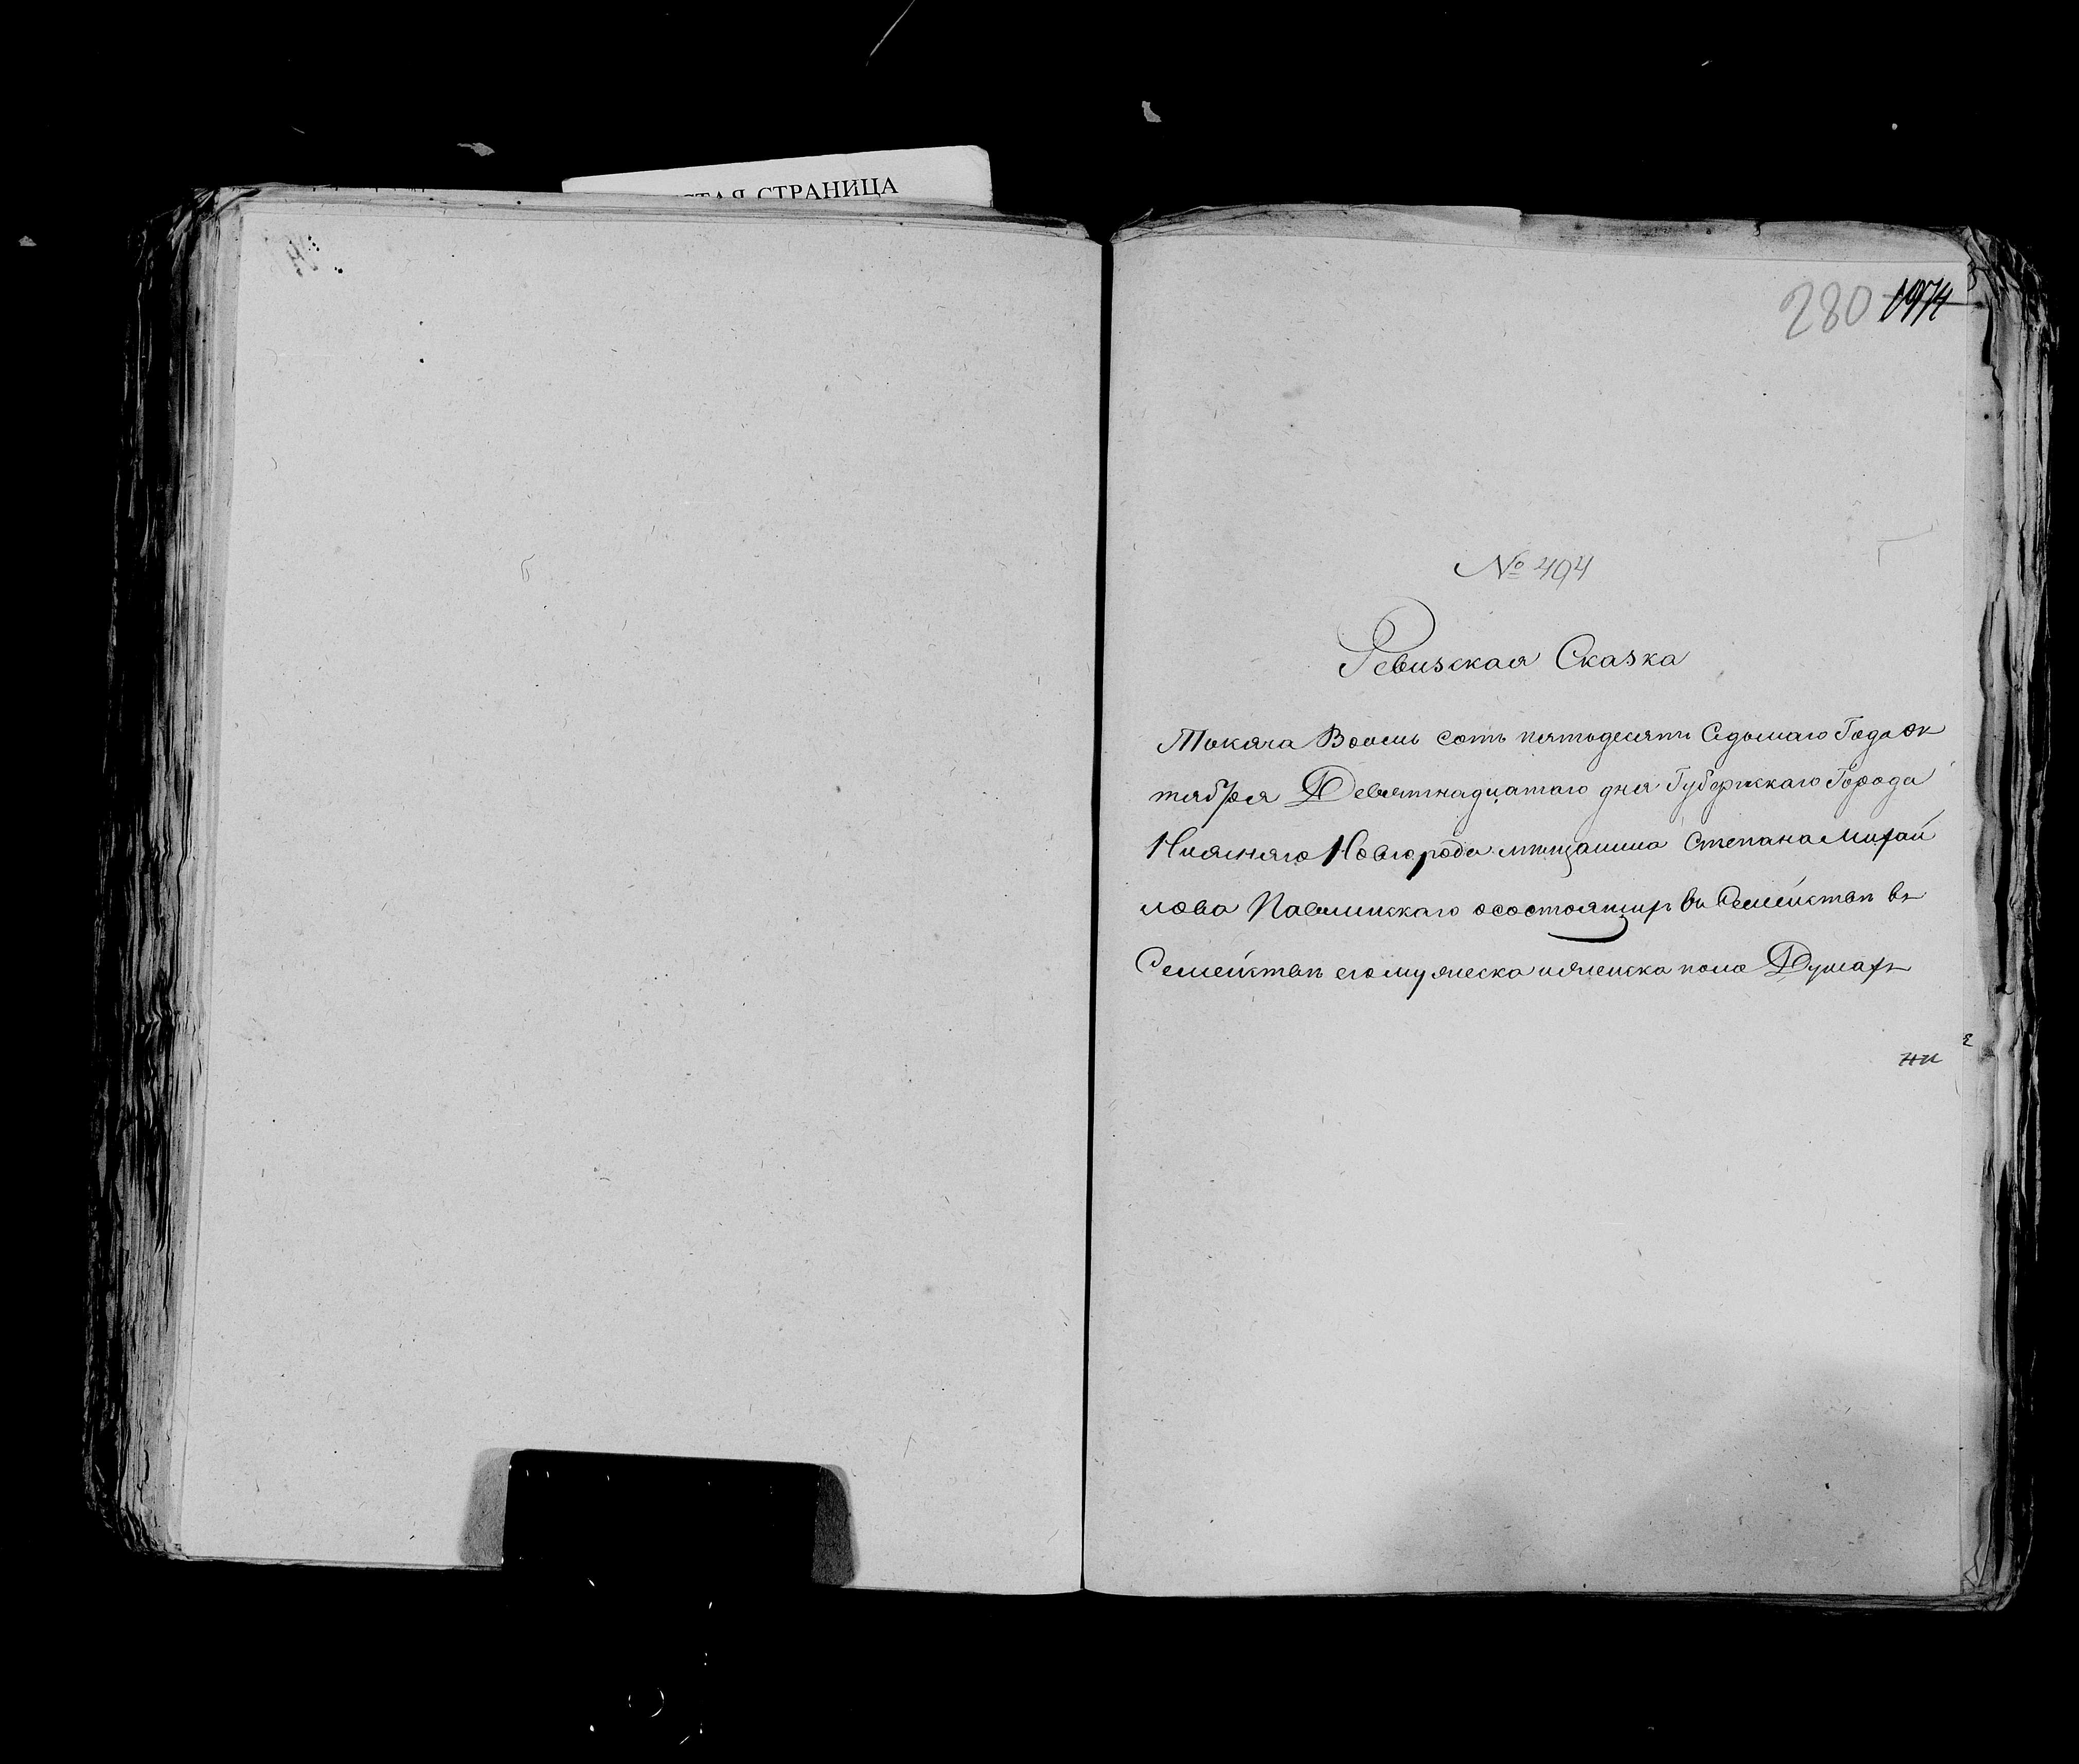 СТАЯ СТРАНИЦА
280 1974
№ 494
Ревизская Сказка
Тысяча Восемь сотъ пятьдесятъ Седьмаго Года Ок
тября Девятнадцатаго дня Губернскаго Города
Нижняго Новгорода мѣщанина Степана Михай
лова Павлинскаго о состоящихъ въ Семействѣ въ
Семействѣ его мужеска и женска пола Душахъ